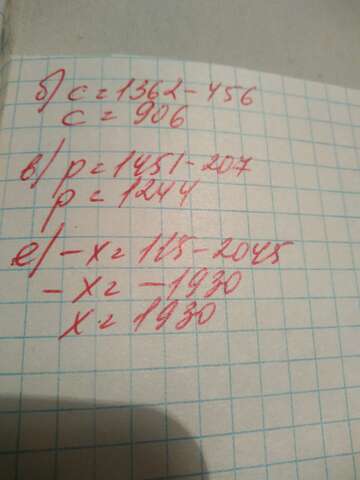 б) c = 1362 - 456
c = 906
в) p = 1451 - 207
p = 1244
е) -x = 115 - 2045
-x = -1930
x = 1930